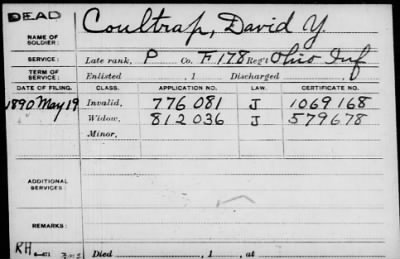 DEAD
NAME OF SOLDIER: Coultrap, David Y.
SERVICE: Late rank, P Co. F. 178 Reg't Ohio Inf
TERM OF SERVICE: Enlisted , 1 Discharged , 1
DATE OF FILING. CLASS. APPLICATION NO. LAW. CERTIFICATE NO.
1890 May 19 Invalid, 776 081 J 1069 168
Widow, 812 036 J 579678
Minor,
ADDITIONAL SERVICES:
REMARKS:
RH
Died , 1 , at